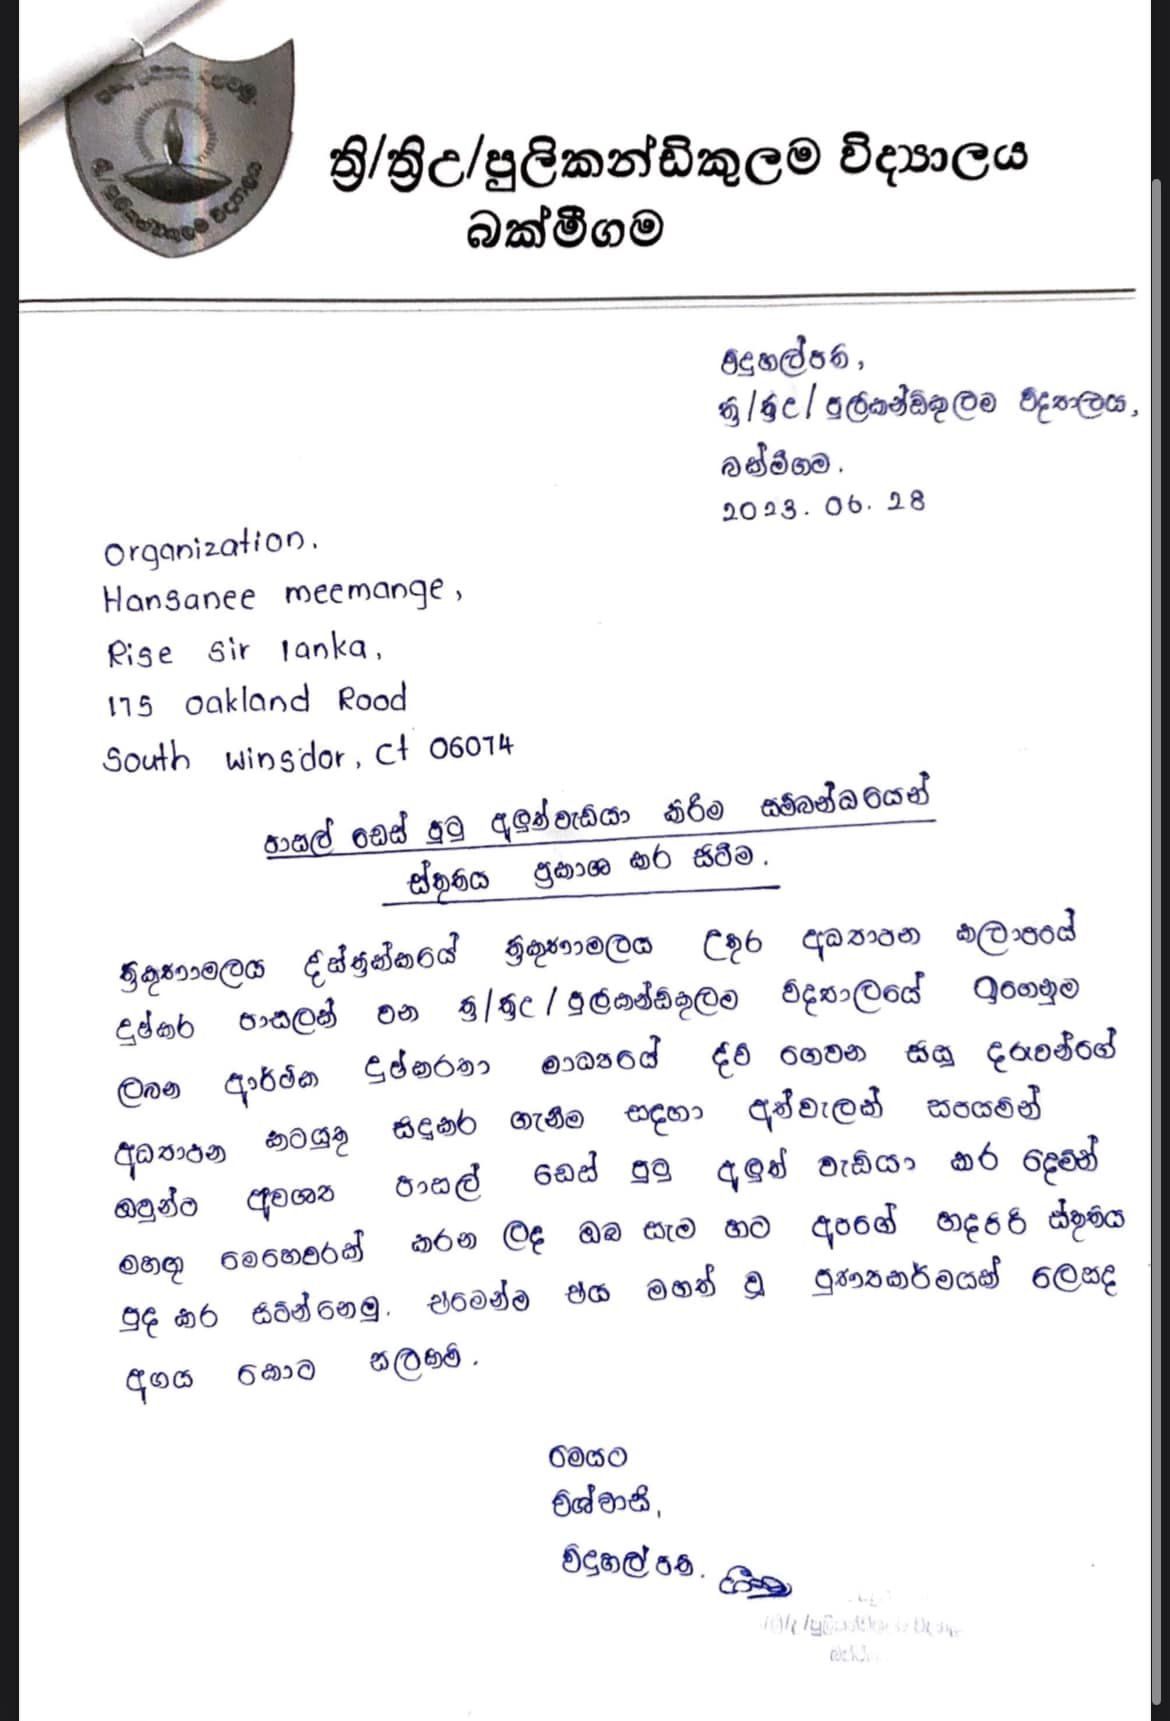 ත්‍රි/ත්‍රිඋ/පුලිකන්ඩිකුලම විද්‍යාලය
බක්මීගම
විදුහල්පති,
ත්‍රි/ත්‍රිඋ/පුලිකන්ඩිකුලම විද්‍යාලය,
බක්මීගම.
2023.06.28
Organization.
Hansanee meemange,
Rise Sir lanka,
175 Oakland Rood
South Winsdor, Ct 06074
පාසල් ඩෙස් පුටු අලුත්වැඩියා කිරීම සම්බන්ධයෙන්
ස්තූතිය ප්‍රකාශ කර සිටීම.
ත්‍රිකුණාමලය දිස්ත්‍රික්කයේ ත්‍රිකුණාමලය උතුර අධ්‍යාපන කලාපයේ
දුෂ්කර පාසලක් වන ත්‍රි/ත්‍රිඋ/පුලිකන්ඩිකුලම විද්‍යාලයේ ඉගෙනුම
ලබන ආර්ථික දුෂ්කරතා මාධ්‍යයේ දිවි ගෙවන සියු දරුවන්ගේ
අධ්‍යාපන කටයුතු සිදුකර ගැනීම සඳහා අත්වැලක් සපයමින්
ඔවුන්ට අවශ්‍ය පාසල් ඩෙස් පුටු අලුත් වැඩියා කර දෙමින්
මහඟු මෙහෙවරක් කරන ලද ඔබ සැම හට අපගේ හදපිරි ස්තූතිය
පුද කර සිටින්නෙමු. එමෙන්ම එය මහත් වූ පුණ්‍යකර්මයක් ලෙසද
අගය කොට සලකමි.
මෙයට
විශ්වාසි,
විදුහල්පති.